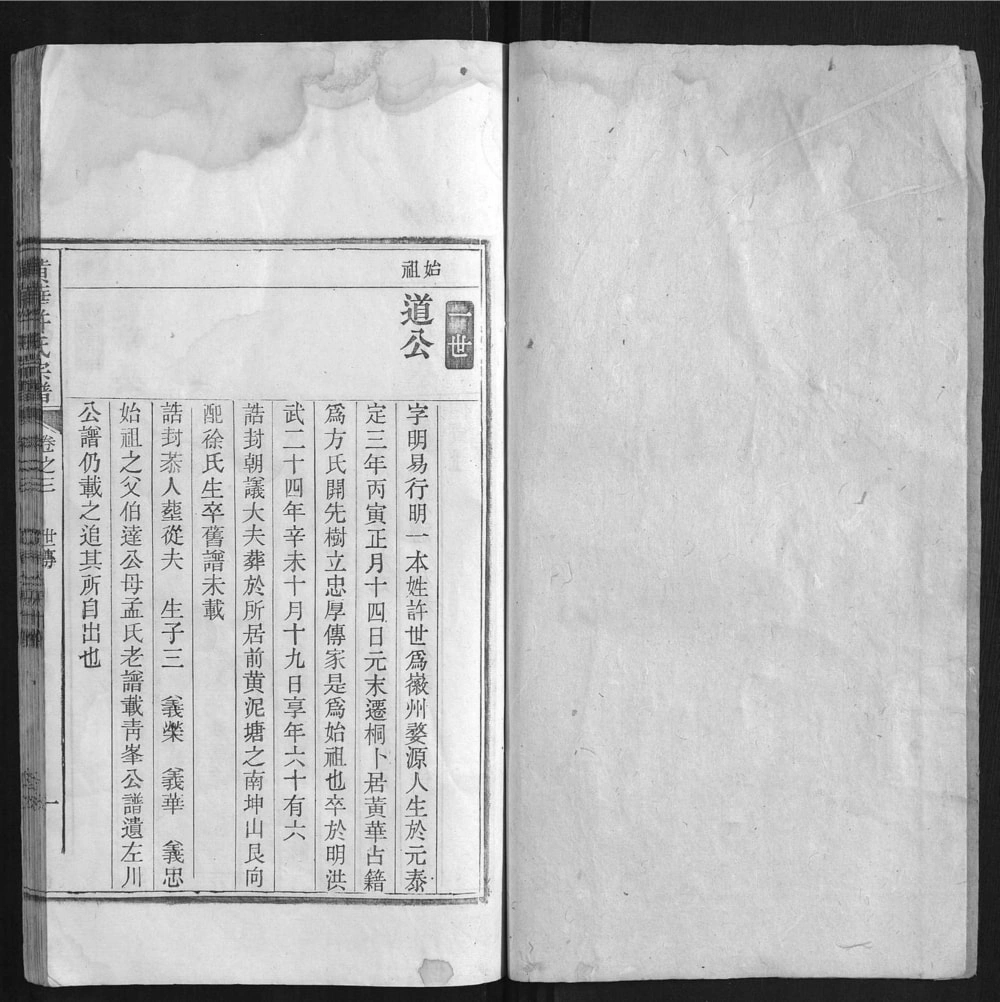 始祖
一世
道公
字明易行明一本姓許世爲徽州婺源人生於元泰
定三年丙寅正月十四日元末遷桐卜居黃華占籍
爲方氏開先樹立忠厚傳家是爲始祖也卒於明洪
武二十四年辛未十月十九日享年六十有六
誥封朝議大夫葬於所居前黃泥塘之南坤山艮向
配徐氏生卒舊譜未載
誥封恭人塟從夫　生子三　義榮　義華　義忠
始祖之父伯達公母孟氏老譜載青峯公譜遺左川
公譜仍載之追其所自出也
黃華許氏宗譜　卷之三　世傳　一